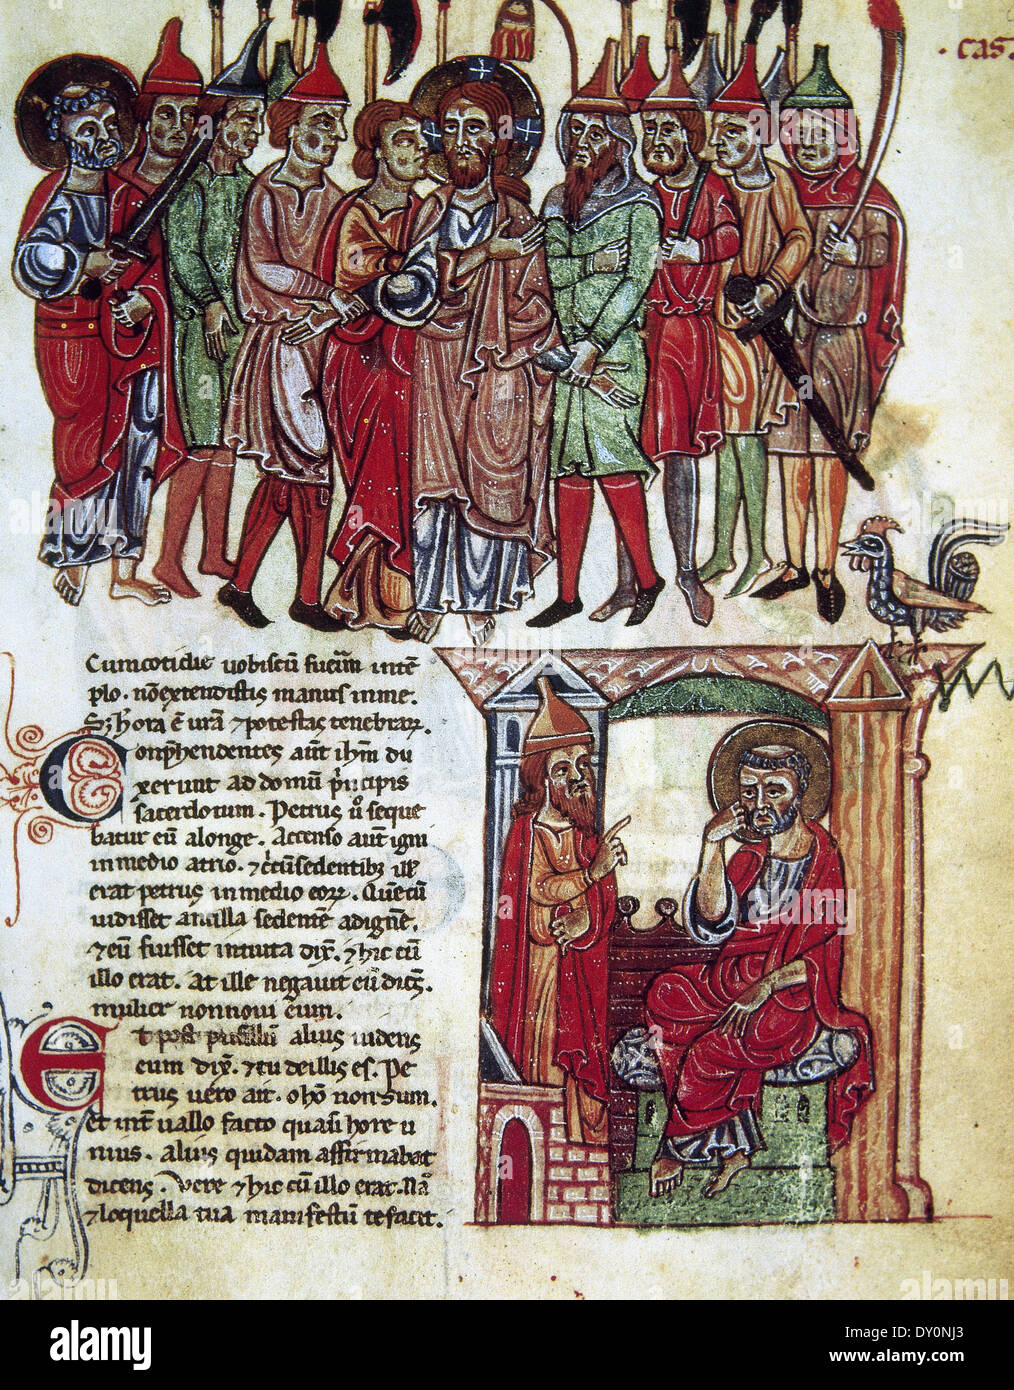 · cas.
Cum cotidie vobiscū fuerim in tē
plo. nō extendistis manus in me.
S; hec ē hora ur̄a ⁊ potestas tenebraꝝ.
Conp̄hendentes aūt ih̄m du
xerunt ad domū p̄ncipis
sacerdotum. Petrus ů seque
batur eū alonge. Accenso aūt igni
in medio atrio. ⁊ c̄cūsedentibꝫ ill̄
erat petrus in medio eoꝝ. Quē cū
vidisset ancilla sedentē ad ignē.
⁊ eū fuisset intuita dix̄. ⁊ hic cū
illo erat. At ille negavit eū dicēs.
mulier non novi eum.
Et post pusillū alius videns
eum dix̄. ⁊ tu de illis es. Pe
trus vero ait. o hō non sum.
et int̄vallo facto quasi hore u
nius. alius quidam affirmabat
dicens. vere ⁊ hic cū illo erat. Nā
⁊ loquella tua manifestū te facit.
alamy
DY0NJ3
www.alamy.com